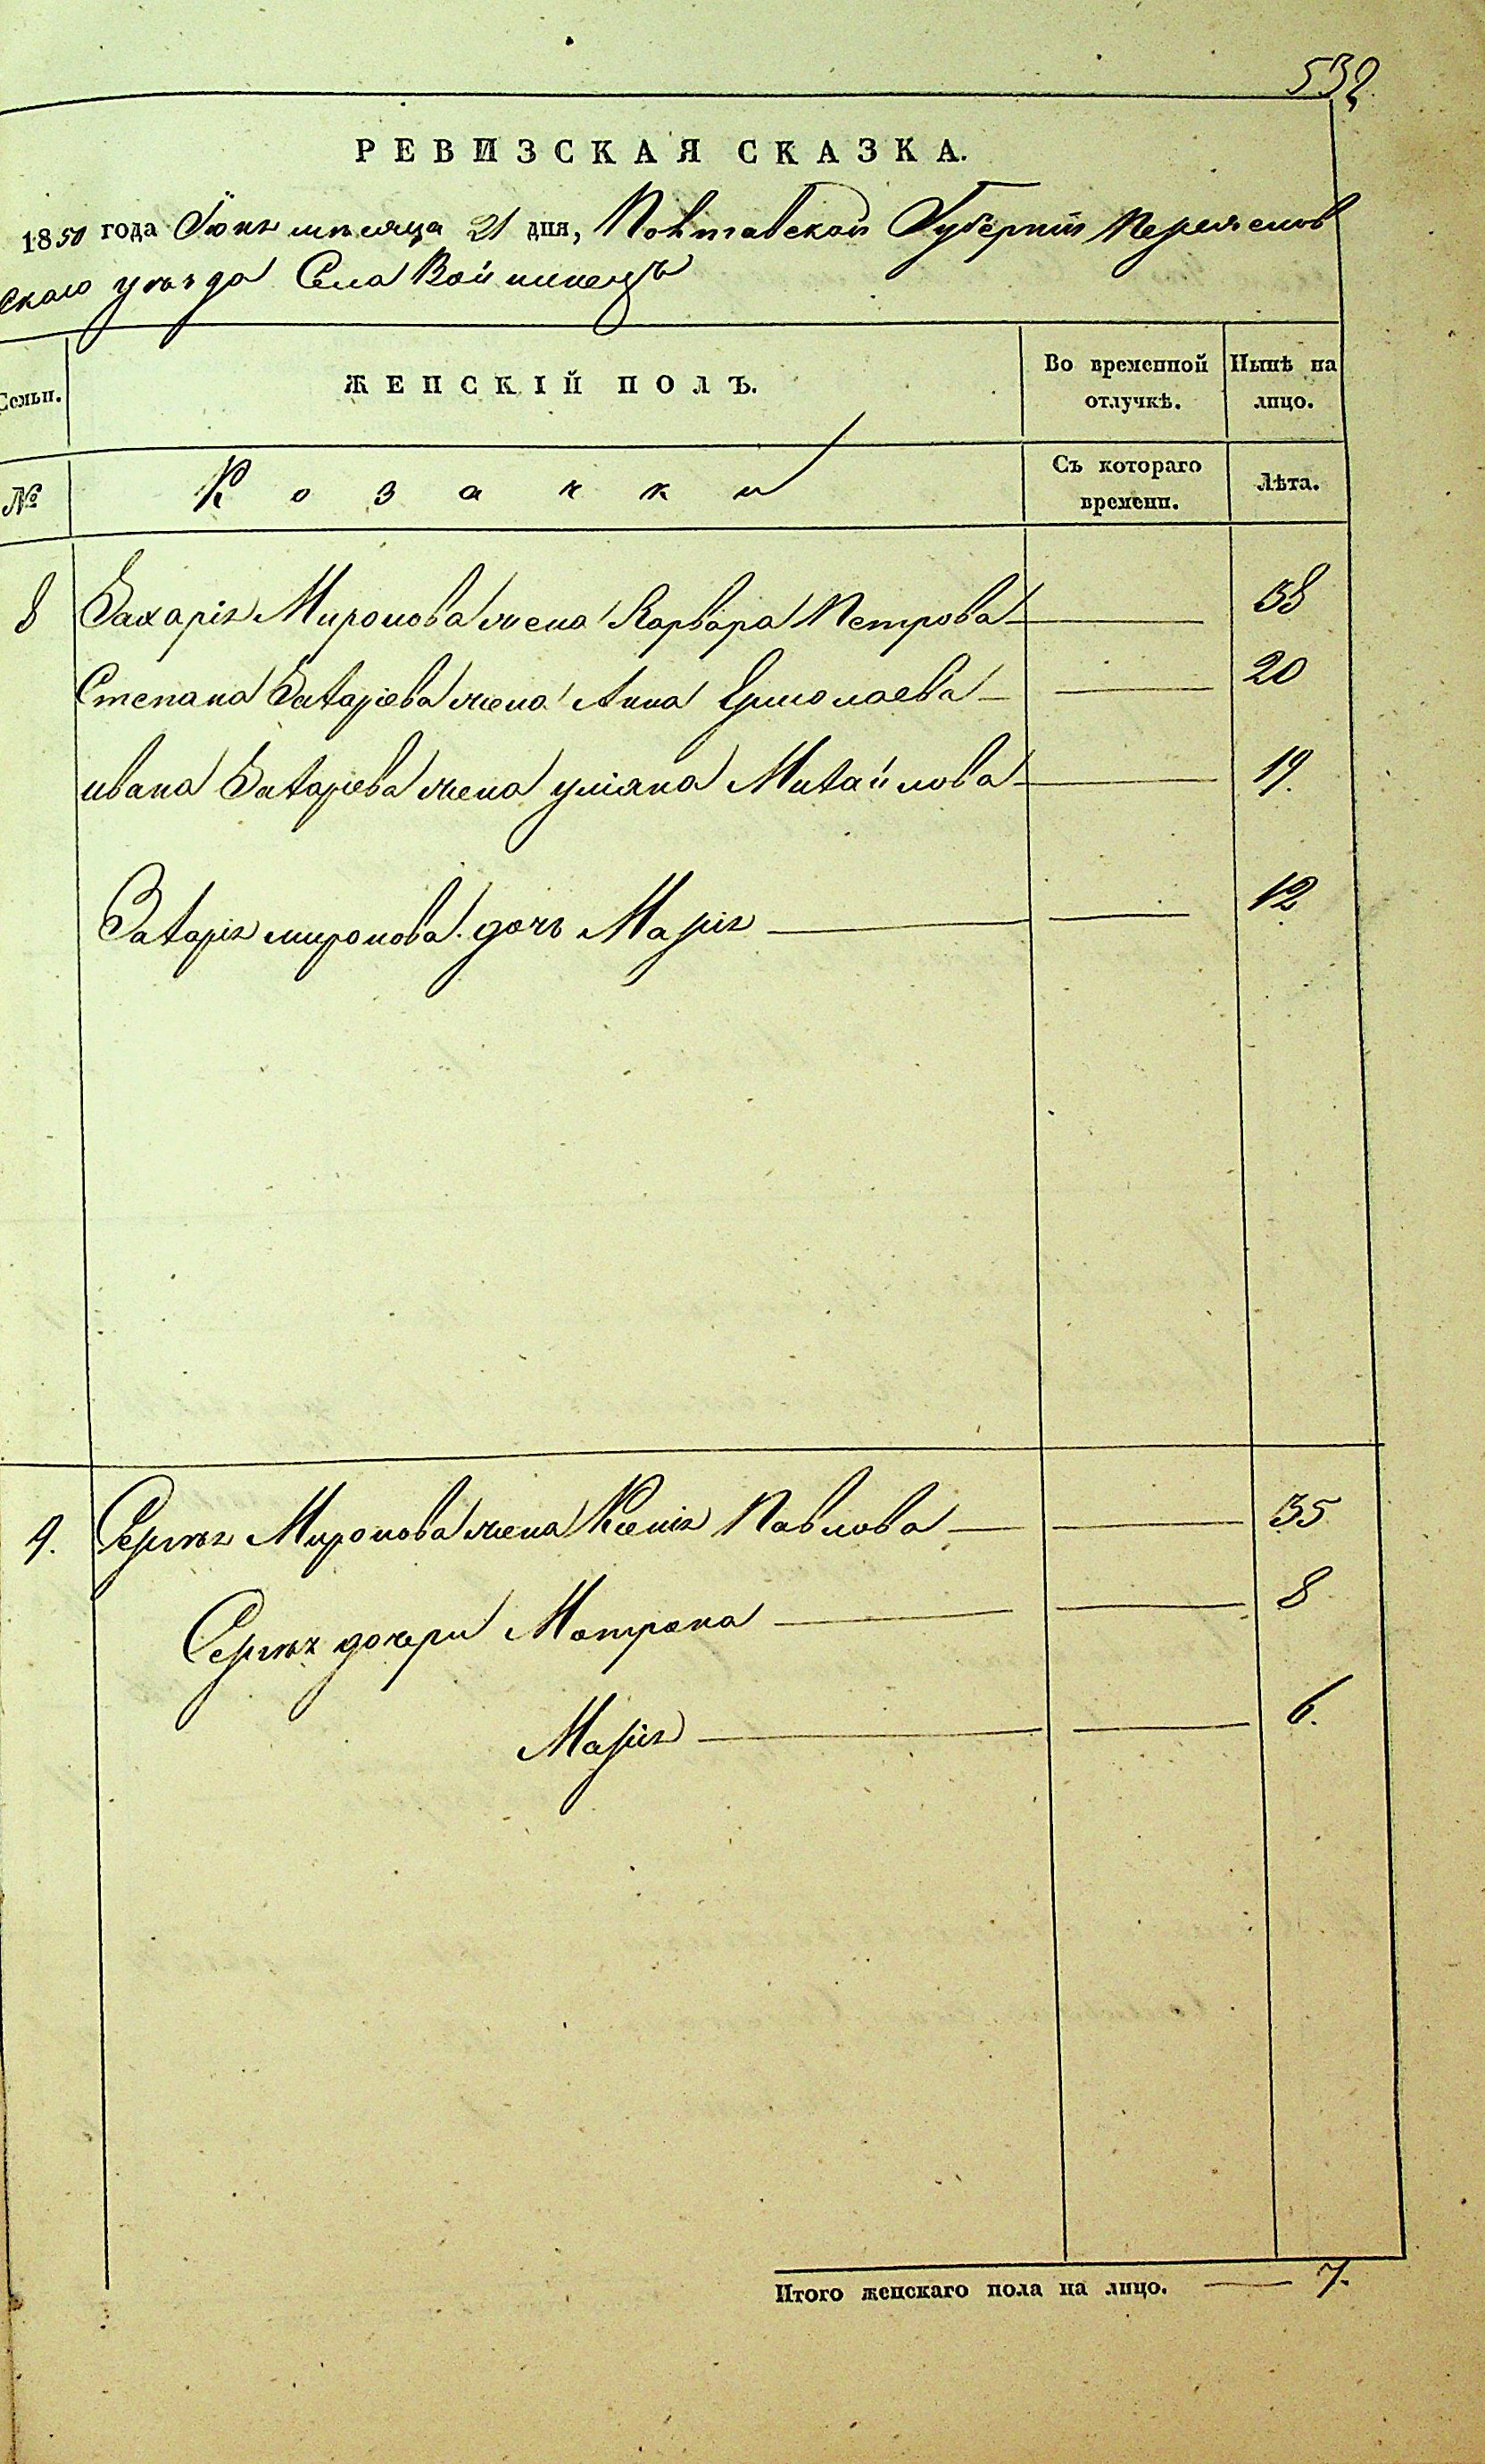 532
РЕВИЗСКАЯ СКАЗКА.
1850 года Іюня мѣсяца 21 дня, Полтавской Губерніи Переяслов
скаго уѣзда Села Войтинецъ
Семьи. ЖЕНСКІЙ ПОЛЪ. Во временной отлучкѣ. Нынѣ на лицо.
№ Козачки Съ котораго времени. Лѣта.
8 Захарія Миронова жена Варвара Петрова — 38
Степана Захаріева жена Анна Ермолаева — 20
ивана Захаріева жена уліяна Михайлова — 19.
Захарія миронова дочь Марія — 12
9. Сергѣя Миронова жена Ксенія Павлова — 35
Сергѣя дочери Матрона — 8
Марія — 6.
Итого женскаго пола на лицо. — 7.